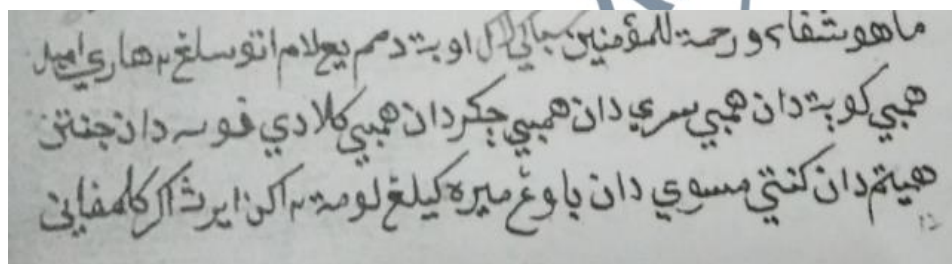 ما هو شفاء ورحمة للمؤمنين سباڬي اوبت دمم يڠلام اتو سلڠ٢ هاري امبل
همبي كوبة دان همبي سري دان همبي جكر دان همبي كلادي قوبه دان جنتن
هيتم دان كنتي مسوي دان باوڠ ميره كيلڠ لومت٢ اكن ايرڽ اكر كلمفاين